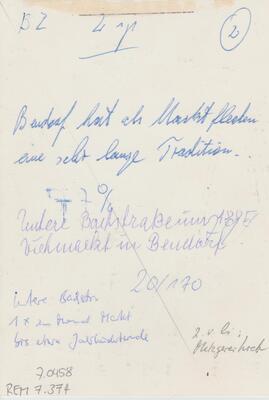 BZ 2 sp (2)
Bendorf hat als Marktflecken
eine sehr lange Tradition.
7 %
Untere Bachstraße um 1895
Viehmarkt in Bendorf.
20/170
Untere Bachstr.
1 x im Monat Markt
bis etwa Jahrhundertwende
2. v. li:
Metzgerei Koch
7.0458
REM 7.374